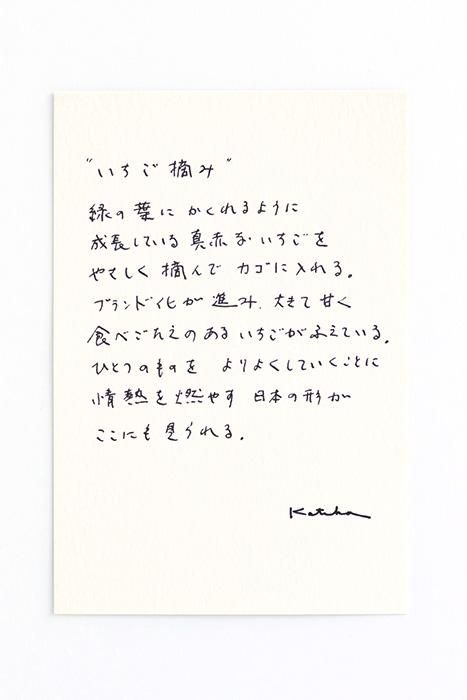 "いちご摘み"
緑の葉に かくれるように
成長している 真赤ないちごを
やさしく 摘んで カゴに入れる。
ブランド化が 進み、大きて 甘く
食べごたえのある いちごがふえている。
ひとつのものを よりよくしていくことに
情熱を燃やす 日本の形が
ここにも 見られる。